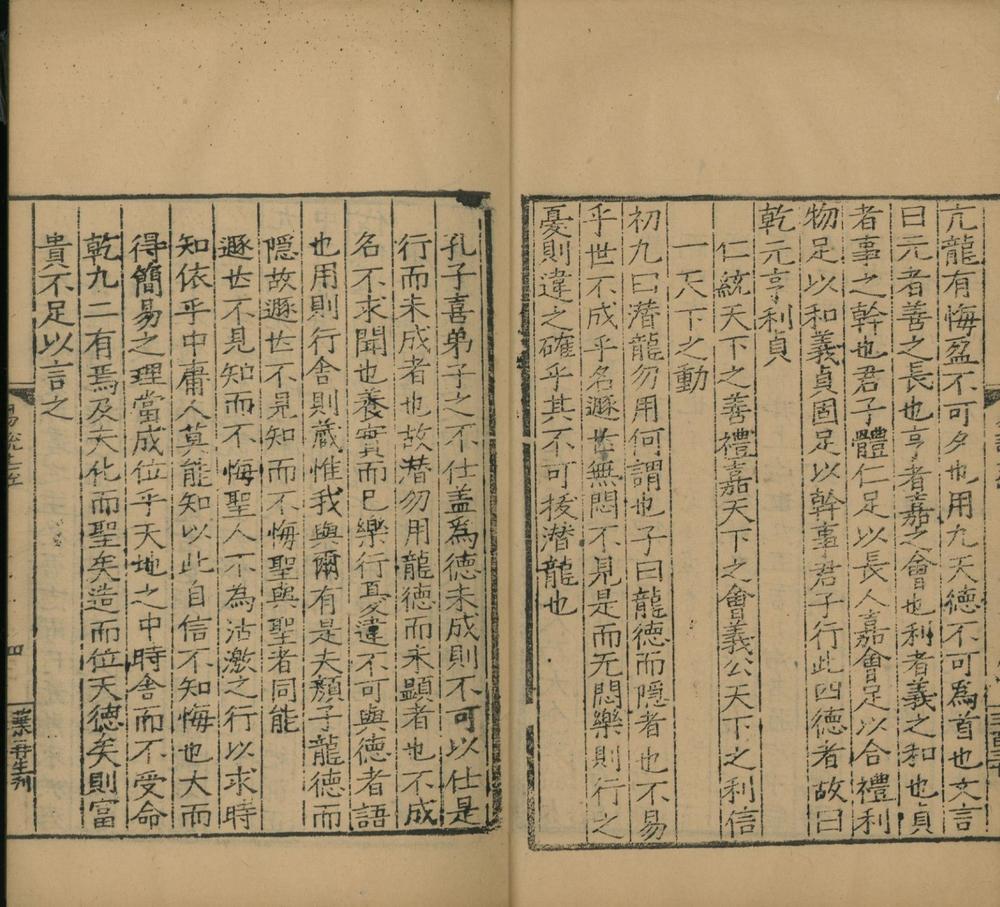 亢龍有悔盈不可久也用九天德不可為首也文言
曰元者善之長也亨者嘉之會也利者義之和也貞
者事之幹也君子體仁足以長人嘉會足以合禮利
物足以和義貞固足以幹事君子行此四德者故曰
乾元亨利貞
仁統天下之善禮嘉天下之會義公天下之利信
一天下之動
初九曰潛龍勿用何謂也子曰龍德而隱者也不易
乎世不成乎名遯世無悶不見是而无悶樂則行之
憂則違之確乎其不可拔潛龍也
孔子喜弟子之不仕盖為德未成則不可以仕是
行而未成者也故潜勿用龍德而未顯者也不成
名不求聞也養實而已樂行憂違不可與德者語
也用則行舍則藏惟我與爾有是夫顏子龍德而
隠故遯世不見知而不悔聖與聖者同能
遯世不見知而不悔聖人不為沽激之行以求時
知依乎中庸人莫能知以此自信不知悔也大而
得簡易之理當成位乎天地之中時舍而不受命
乾九二有焉及夫化而聖矣造而位天德矣則富
貴不足以言之
四